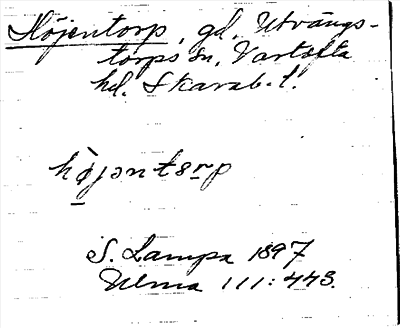 Höjentorp, gd, Utvängs-
torps sn, Vartofta
hd. Skarab. l.
S. Lampa 1897
Ulma 111:443.